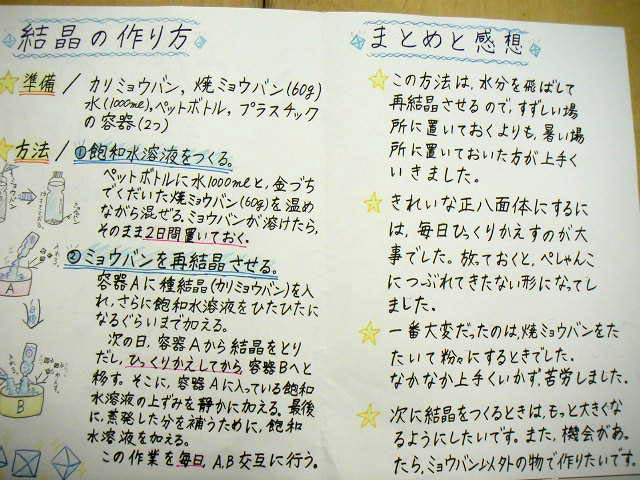 結晶の作り方
準備 / カリミョウバン, 焼ミョウバン(60g)
水(1000ml), ペットボトル, プラスチック
の容器(2つ)
方法 / ①飽和水溶液をつくる。
ペットボトルに水1000mlと, 金づち
でくだいた焼ミョウバン(60g)を温め
ながら混ぜる。ミョウバンが溶けたら,
そのまま2日間置いておく。
②ミョウバンを再結晶させる。
容器Aに種結晶(カリミョウバン)を入
れ, さらに飽和水溶液をひたひたに
なるぐらいまで加える。
次の日, 容器Aから結晶をとり
だし, ひっくりかえしてから, 容器Bへと
移す。そこに, 容器Aに入っている飽和
水溶液の上ずみを静かに加える。最後
に, 蒸発した分を補うために, 飽和
水溶液を加える。
この作業を毎日, A,B交互に行う。
A
B
まとめと感想
この方法は, 水分を飛ばして
再結晶させるので, すずしい場
所に置いておくよりも, 暑い場
所に置いておいた方が上手く
いきました。
きれいな正八面体にするに
は, 毎日ひっくりかえすのが大
事でした。放っておくと, ぺしゃんこ
につぶれてきたない形になってし
まいました。
一番大変だったのは, 焼ミョウバンをた
たいて粉々にするときでした。
なかなか上手くいかず, 苦労しました。
次に結晶をつくるときは, もっと大きくな
るようにしたいです。また, 機会があっ
たら, ミョウバン以外の物で作りたいです。